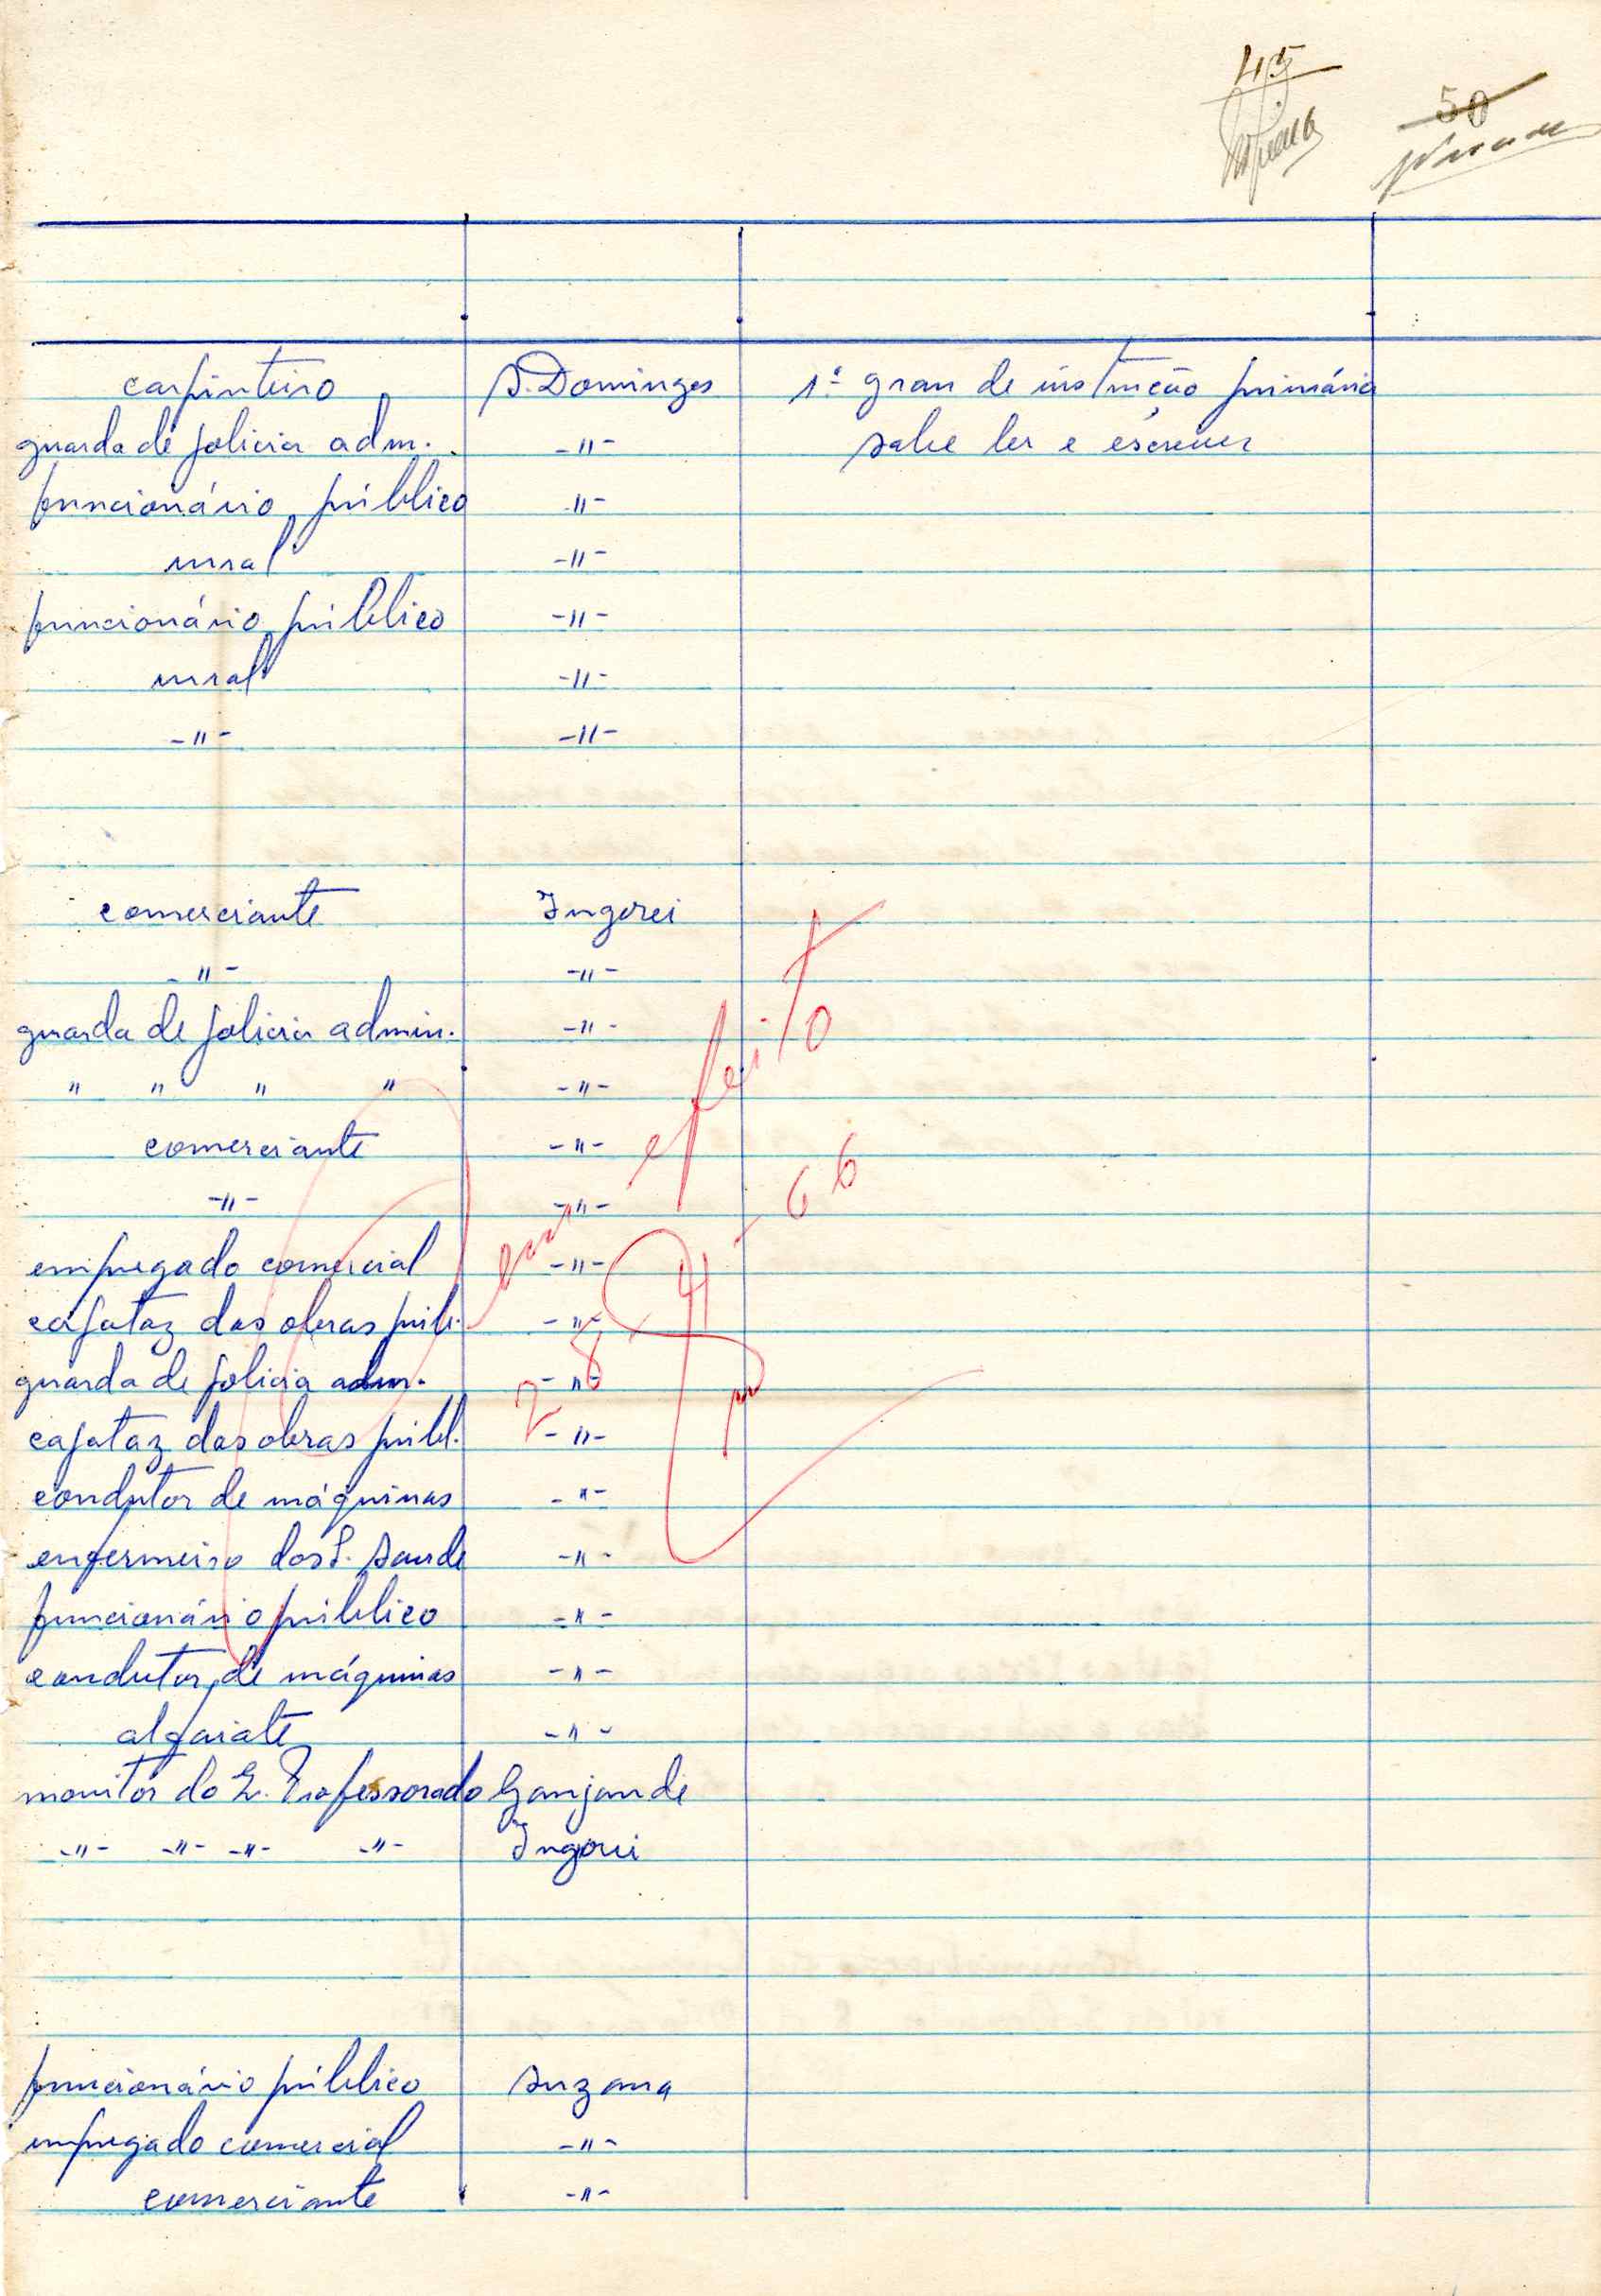 45
50
carpinteiro S. Domingos 1º grau de instrução primária
guarda de policia adm. -"- sabe ler e escrever
funcionário público -"-
rural -"-
funcionário público -"-
rural -"-
-"- -"-
comerciante Ingorei
-"- -"-
guarda de policia admin. -"-
" " " " -"-
comerciante -"-
-"- -"-
empregado comercial -"-
capataz das obras púb. -"-
guarda de policia adm. -"-
capataz das obras públ. -"-
condutor de máquinas -"-
enfermeiro dos S. Saude -"-
funcionário público -"-
condutor de máquinas -"-
alfaiate -"-
monitor do E. Professorado Ganjande
-"- -"- -"- -"- Ingorei
funcionário público Suzana
empregado comercial -"-
comerciante -"-
Sem efeito
28-4-66